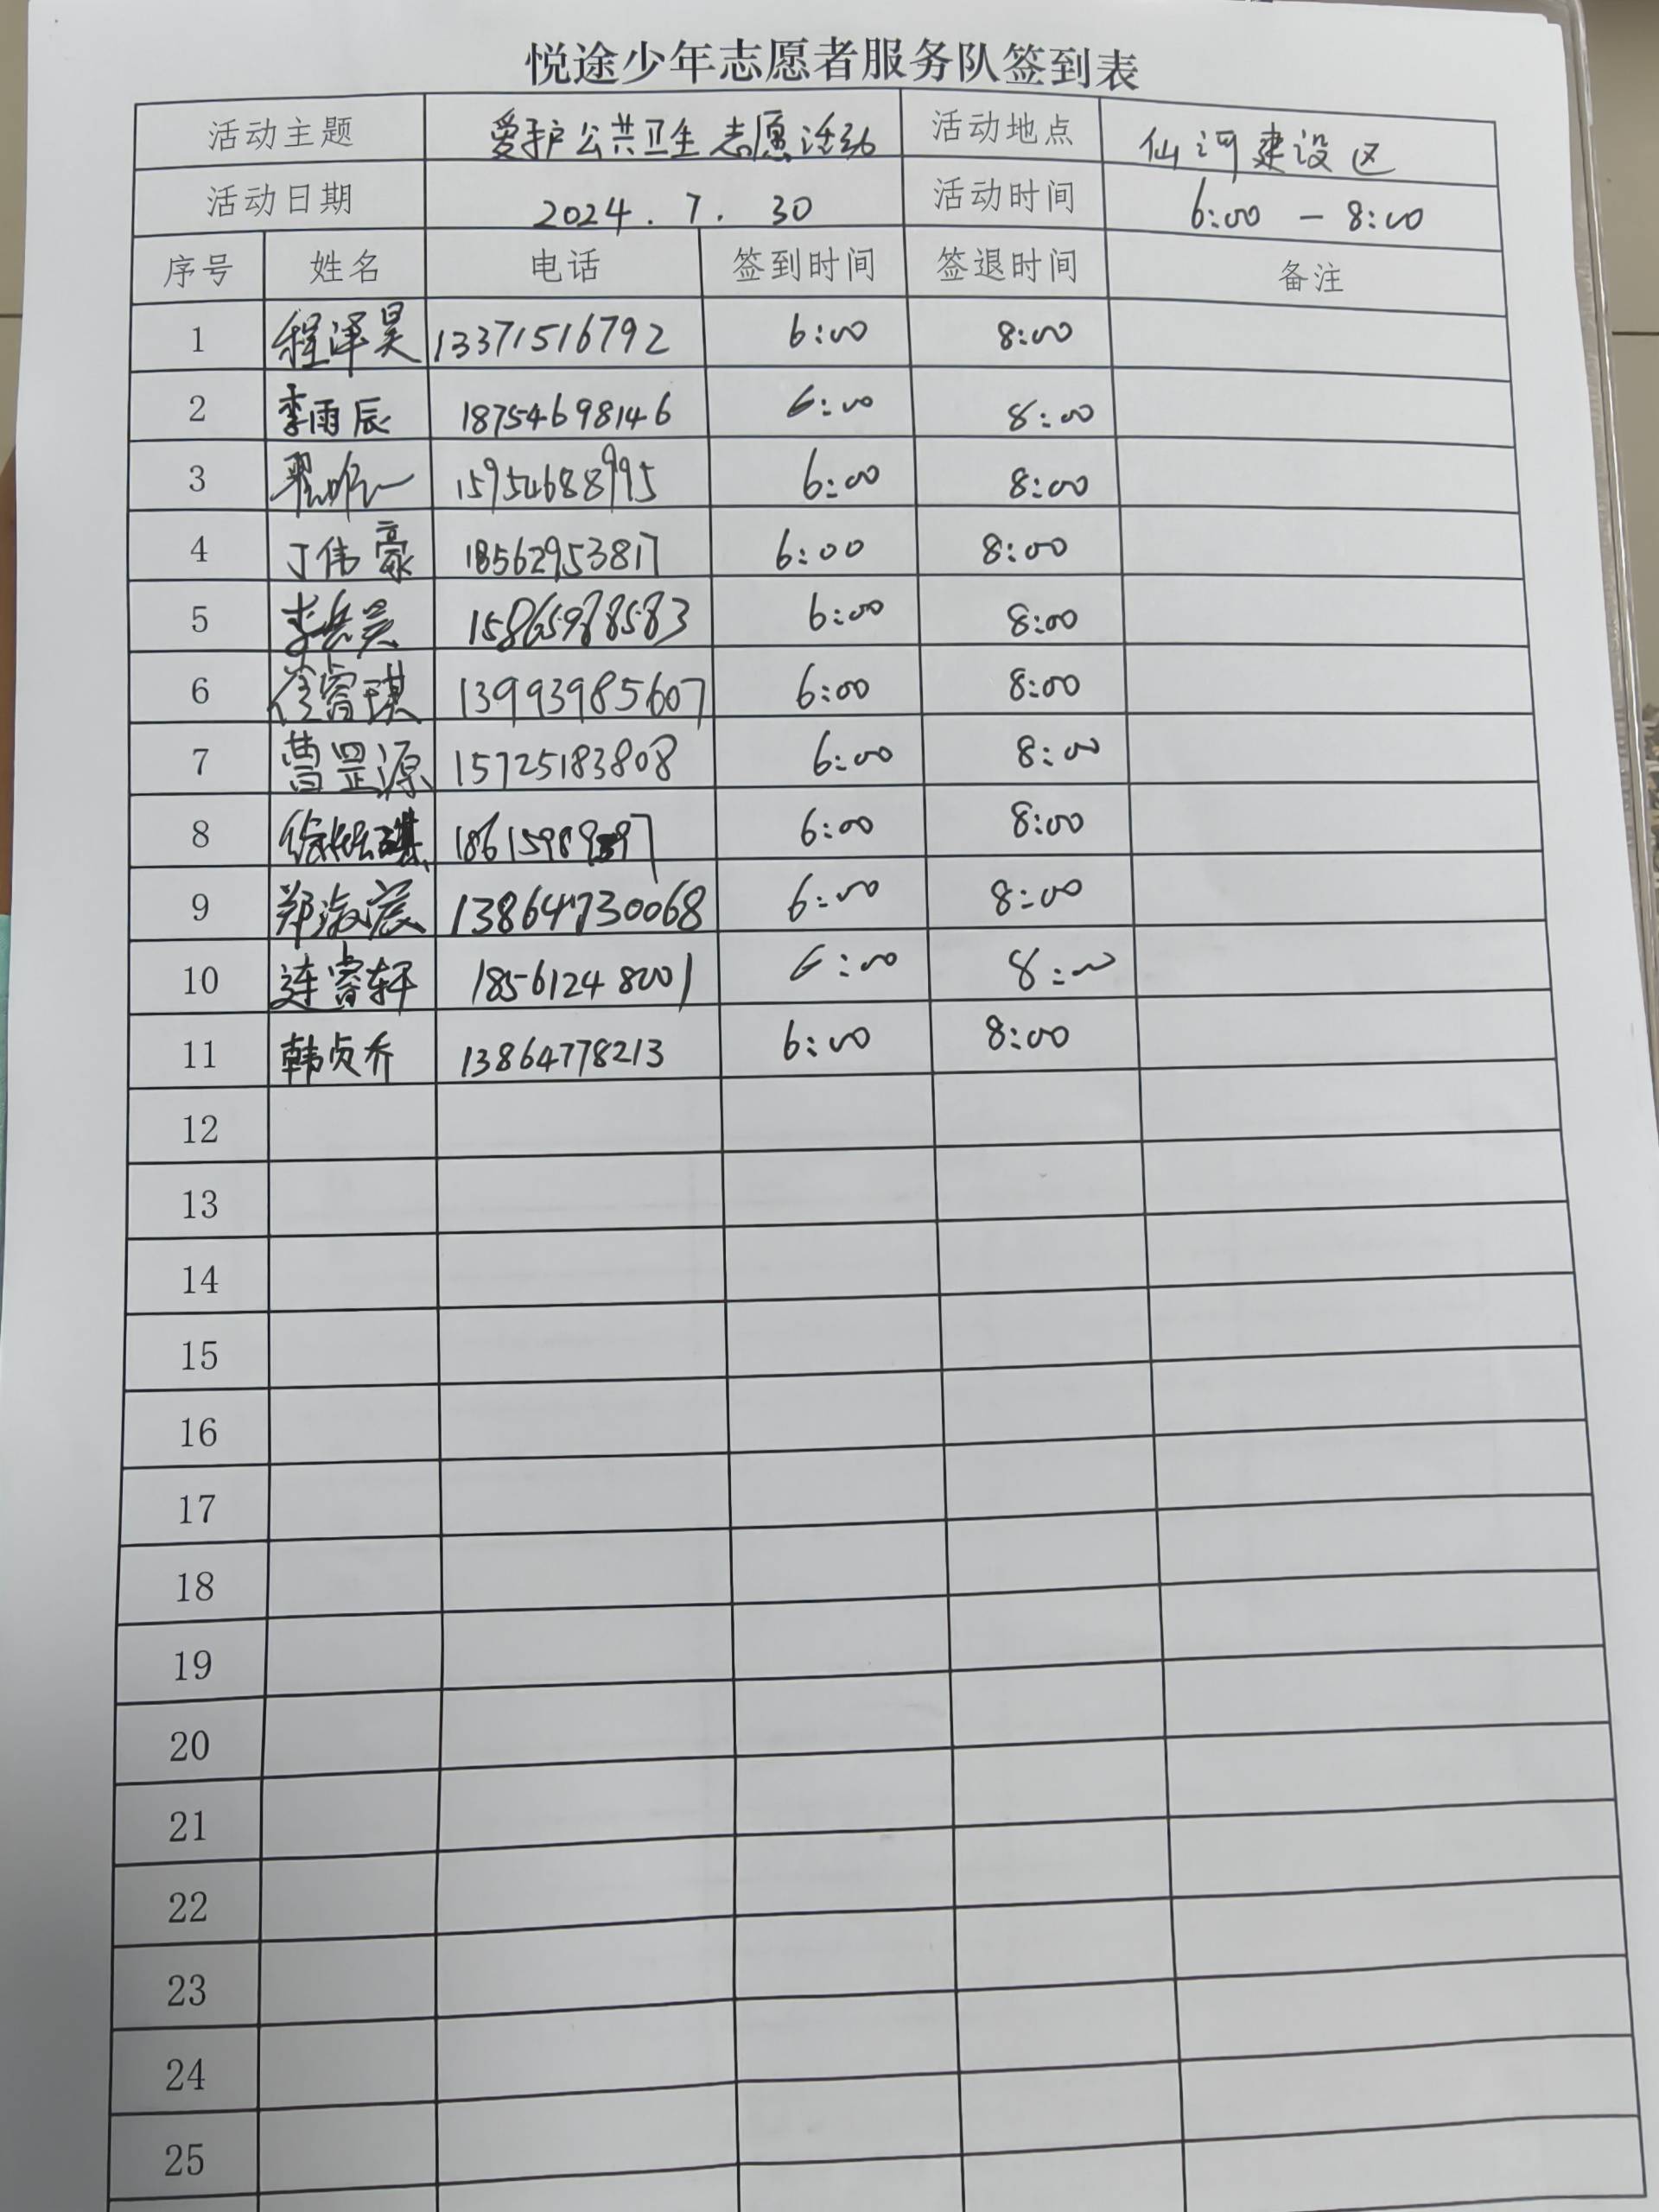 悦途少年志愿者服务队签到表
活动主题 爱护公共卫生志愿活动 活动地点 仙河建设区
活动日期 2024.7.30 活动时间 6:00-8:00
序号 姓名 电话 签到时间 签退时间 备注
1 程泽昊 13371516792 6:00 8:00
2 李雨辰 18754698146 6:00 8:00
3 15954688995 6:00 8:00
4 丁伟豪 18562953817 6:00 8:00
5 15865988583 6:00 8:00
6 徐睿琪 13993985607 6:00 8:00
7 曹罡源 15725183808 6:00 8:00
8 6:00 8:00
9 郑淑宸 13864730068 6:00 8:00
10 连睿轩 18561248001 6:00 8:00
11 韩贞乔 13864778213 6:00 8:00
12
13
14
15
16
17
18
19
20
21
22
23
24
25